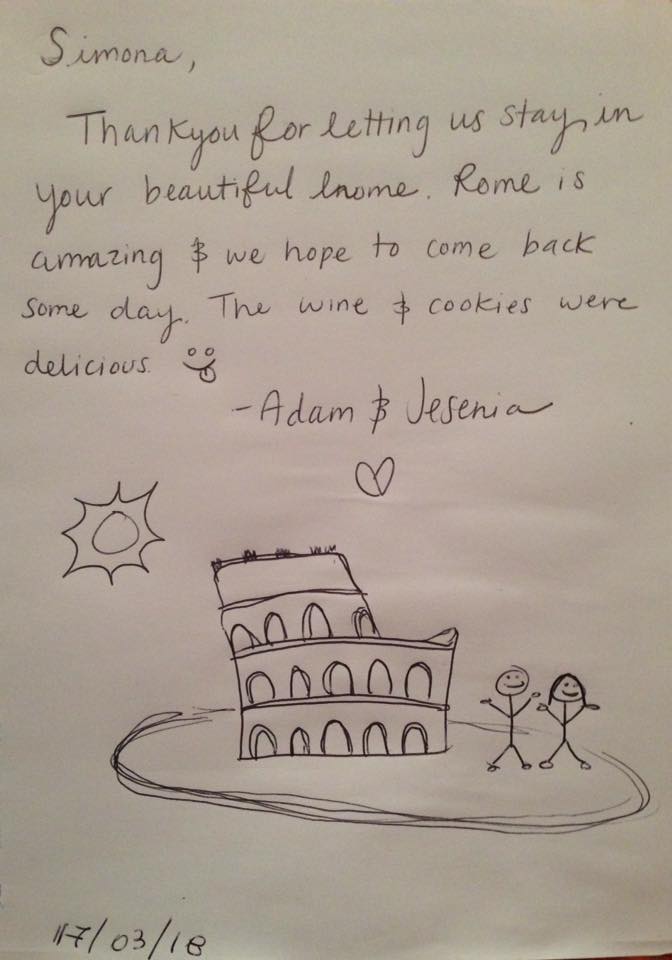 Simona,
Thankyou for letting us stay in
your beautiful home. Rome is
amazing & we hope to come back
some day. The wine & cookies were
delicious.
-Adam & Jesenia
17/03/18